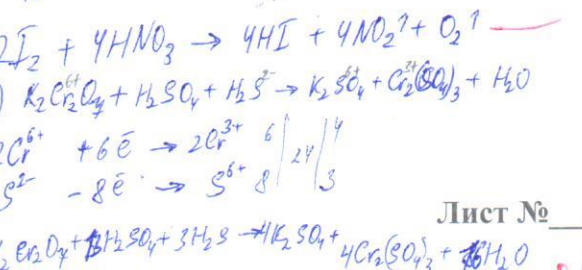 2I₂ + 4HNO₃ → 4HI + 4NO₂↑ + O₂↑
) K₂Cr₂⁶⁺O₇ + H₂SO₄ + H₂S²⁻ → K₂S⁶⁺O₄ + Cr₂³⁺(SO₄)₃ + H₂O
2Cr⁶⁺ +6ē → 2Cr³⁺ 6 | 24 | 4
S²⁻ -8ē → S⁶⁺ 8 | 3
Лист №
₂Cr₂O₇ + H₂SO₄ + 3H₂S → 4K₂SO₄ +
4Cr₂(SO₄)₃ + H₂O